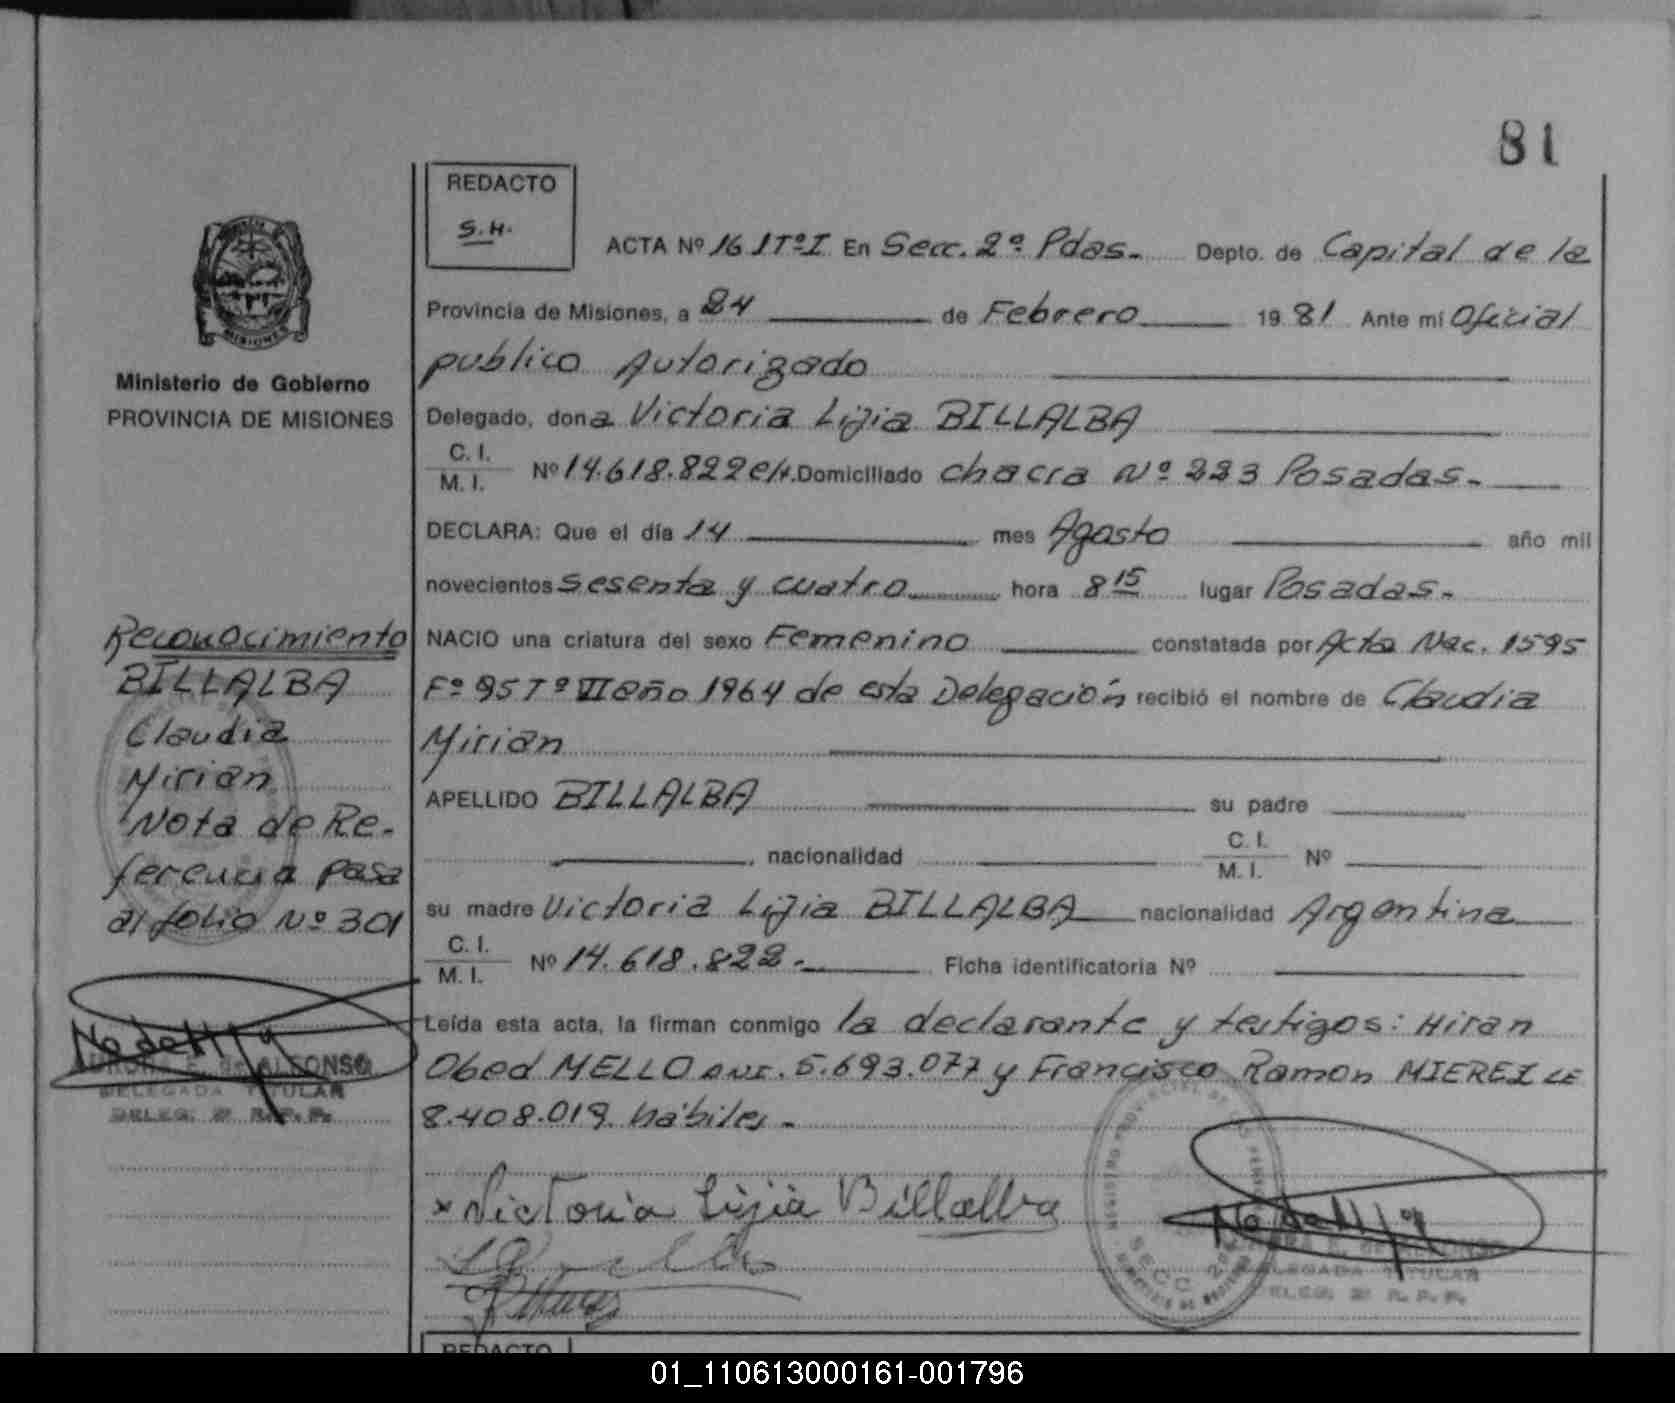 81
REDACTO
S.H.
ACTA Nº 161 Tº I En Secc. 2º Pdas. Depto. de Capital de la
Provincia de Misiones, a 24 de Febrero 1981 Ante mí Oficial
publico Autorizado
Ministerio de Gobierno
PROVINCIA DE MISIONES
Delegado, dona Victoria Lijia BILLALBA
C. I.
M. I. Nº 14.618.822 Domiciliado chacra Nº 223 Posadas.
DECLARA: Que el día 14 mes Agosto año mil
novecientos sesenta y cuatro hora 8 15 lugar Posadas.
NACIO una criatura del sexo Femenino constatada por Acta Nac. 1595
Fº 95 Tº VII año 1964 de esta Delegación recibió el nombre de Claudia
Mirian
APELLIDO BILLALBA su padre
, nacionalidad C. I. M. I. Nº
su madre Victoria Lijia BILLALBA nacionalidad Argentina
C. I.
M. I. Nº 14.618.822. Ficha identificatoria Nº
Leída esta acta, la firman conmigo la declarante y testigos: Hiran
Obed MELLO DNI. 5.693.077 y Francisco Ramon MIEREZ LE
8.408.019 hábiles.
Reconocimiento
BILLALBA
Claudia
Mirian
Nota de Re-
ferencia pasa
al folio Nº 301
DE ALFONSO
DELEGADA TITULAR
DELEG. 2ª R.P.P.
x Victoria Lijia Billalba
SECC 2ª
DELEGADA TITULAR
DELEG. 2ª R.P.P.
REDACTO
01_110613000161-001796